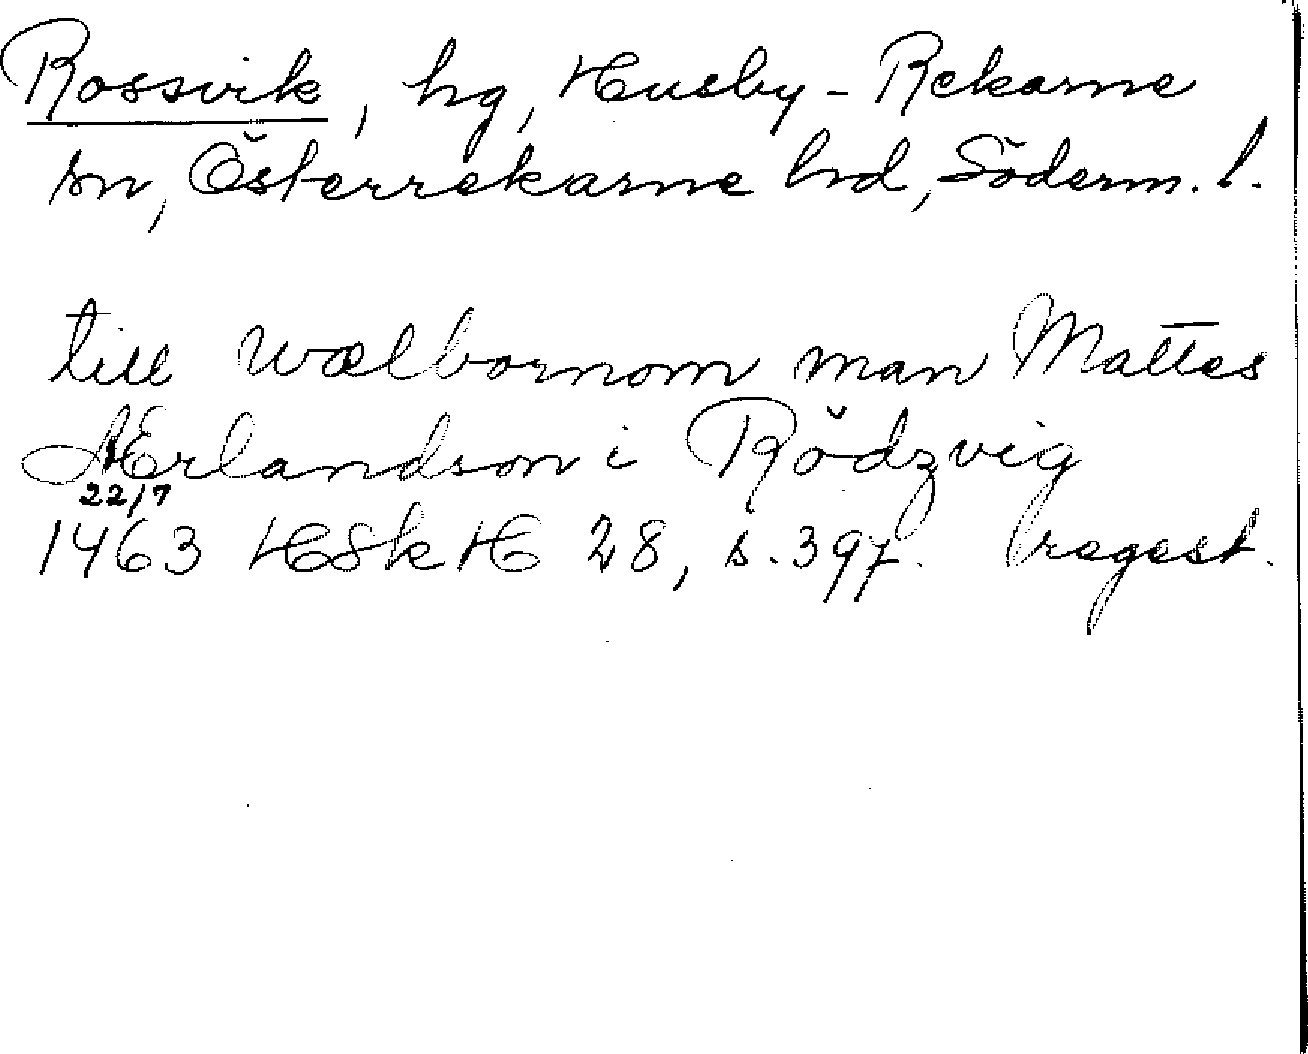 Rossvik, hg, Husby-Rekarne
sn, Österrekarne hd, Söderm. l.
till wælbornom man Mattes
Ærlandson i Rödzvig
22/7
1463 HSkH 28, s. 39f. (regest.